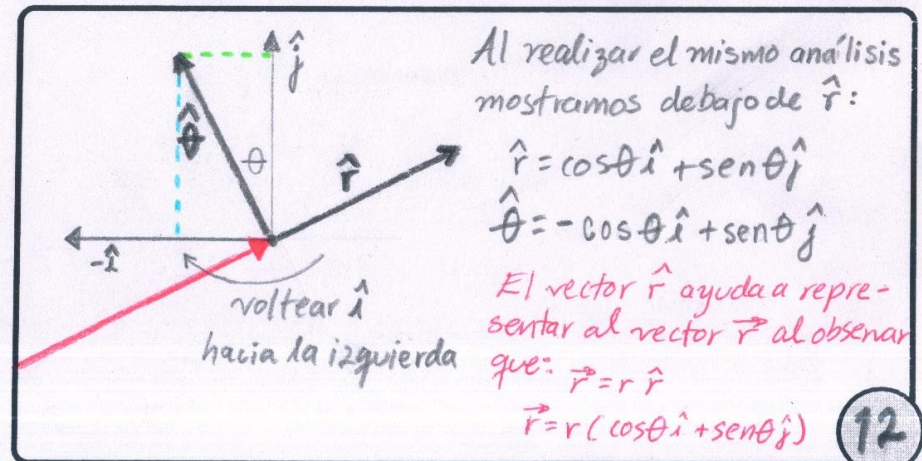 ĵ
θ̂
θ
r̂
-î
voltear î
hacia la izquierda
Al realizar el mismo análisis
mostramos debajo de r̂:
r̂ = cosθ î + senθ ĵ
θ̂ = - cosθ î + senθ ĵ
El vector r̂ ayuda a repre-
sentar al vector r⃗ al observar
que:
r⃗ = r r̂
r⃗ = r ( cosθ î + senθ ĵ )
12